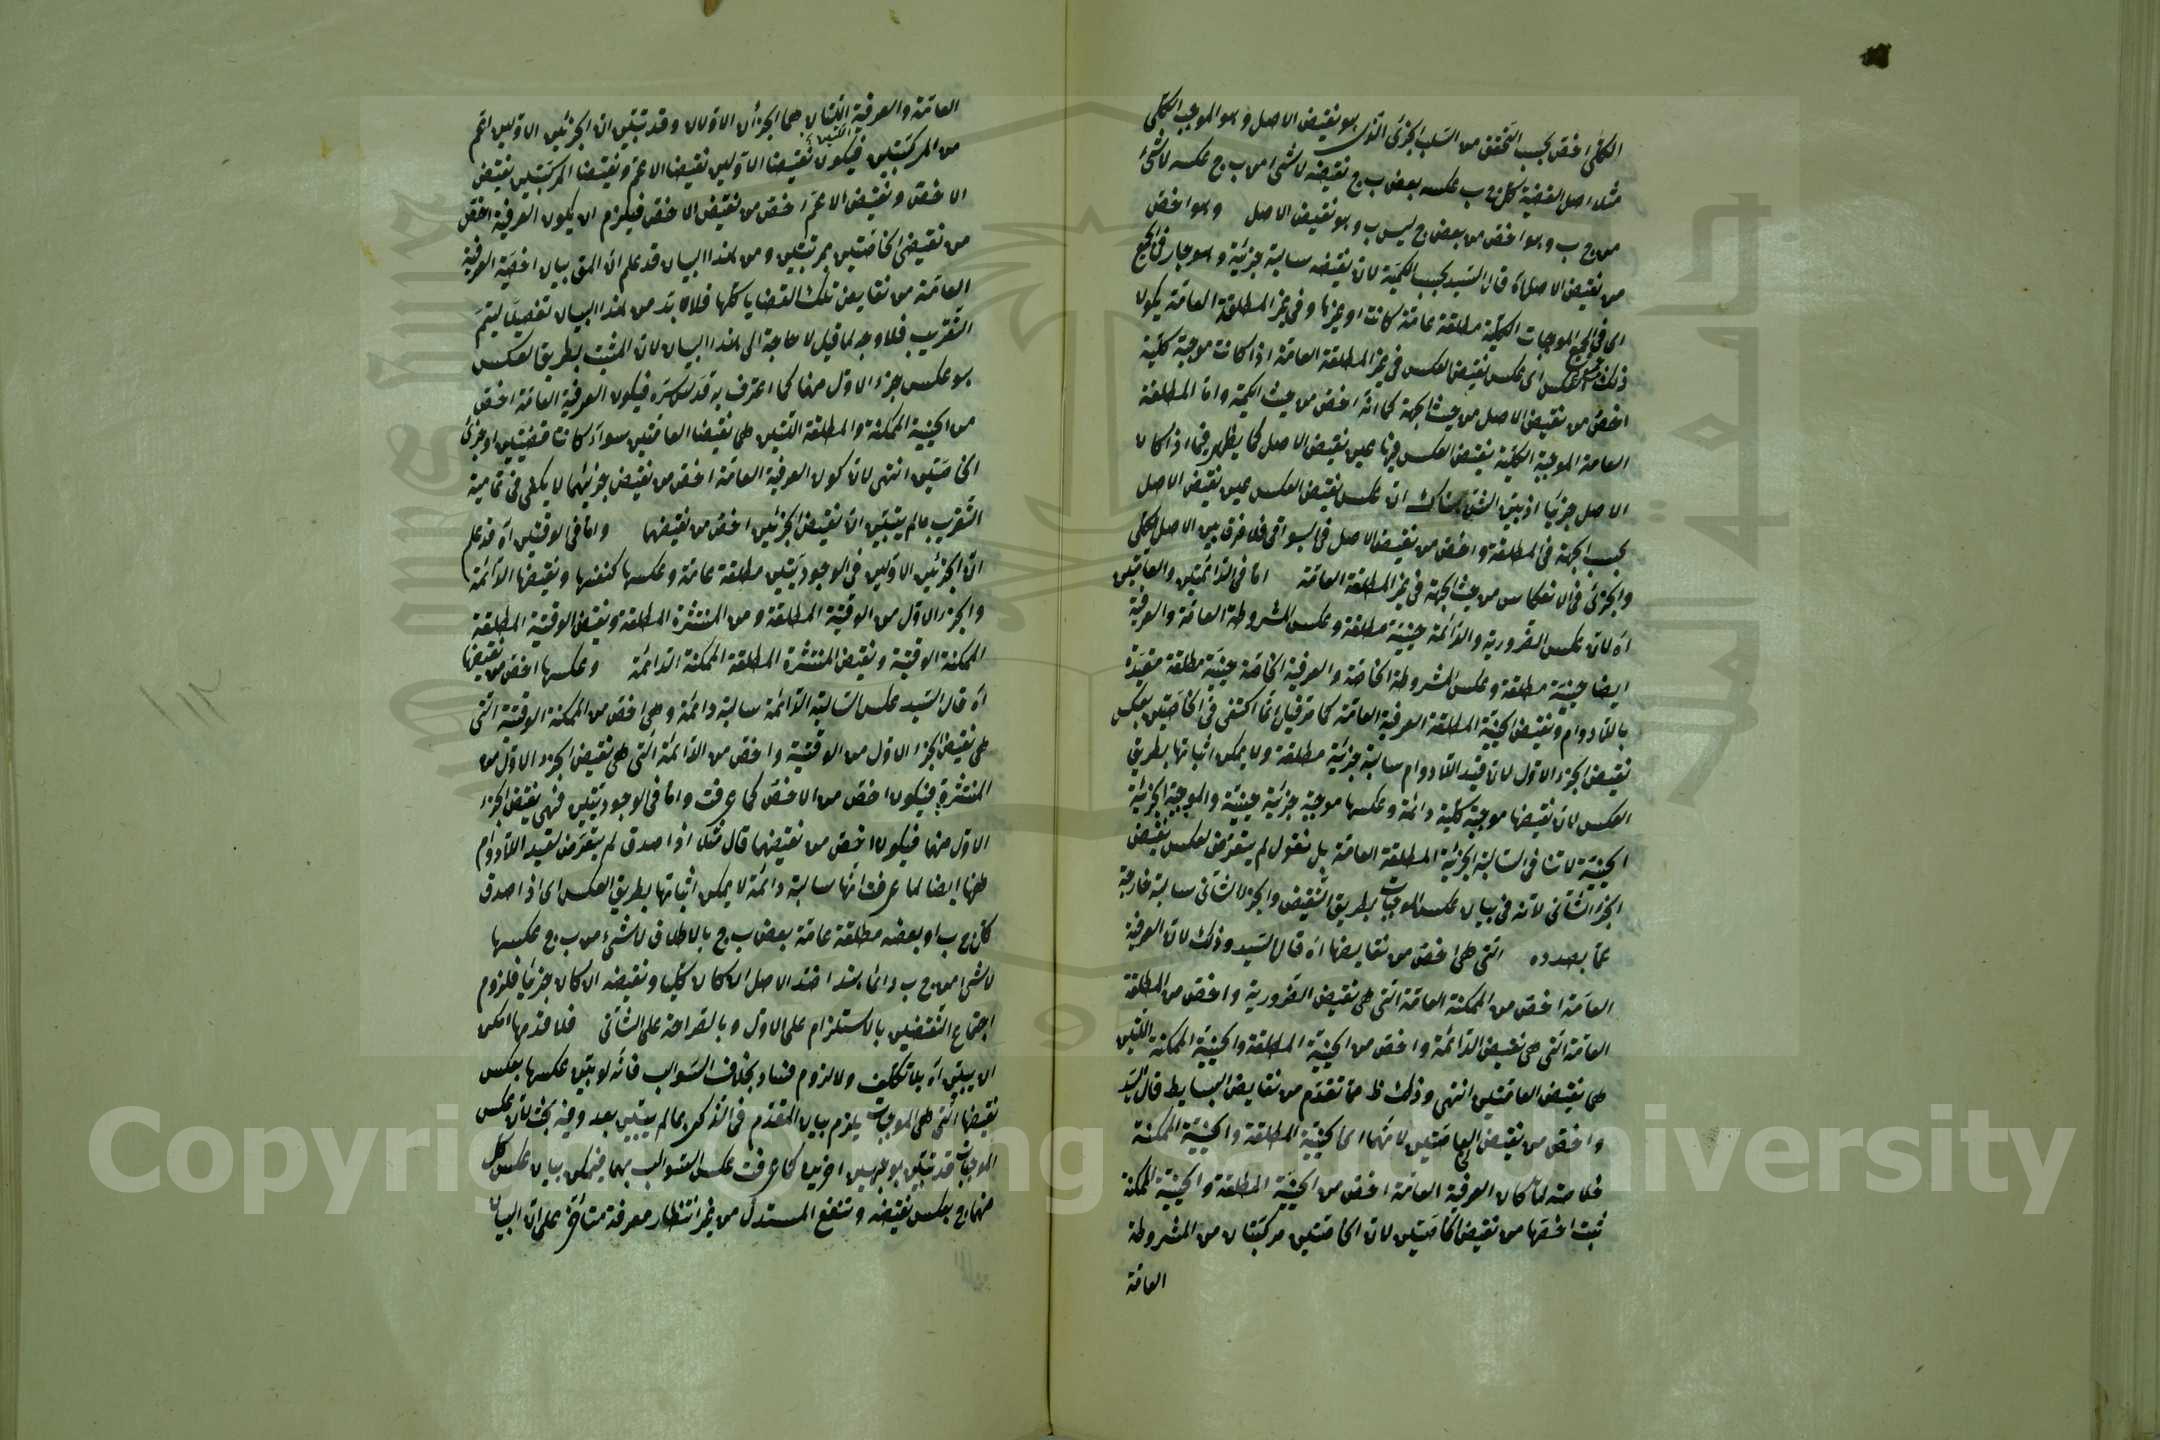 الكلى اخص بحسب التحقق من السلب الجزئى الذى هو نقيض الاصل وهو الموجب الكلى
مثلا اصل القضية كل ج ب عكسه بعض ب ج نقيضه لا شئ من ب ج عكسه لا شئ
من ج ب وهو اخص من بعض ج ليس ب وهو نقيض الاصل وهو اخص
من نقيض الاصل اه قال السيد بحسب الكمية لان نقيضه سالبة جزئية وهو جار فى الجميع
اى فى الجميع الموجبات الكلية مطلقة عامة كانت او غيرها وفى غير المطلقة العامة يكون
ذلك العكس اى عكس نقيض العكس فى غير المطلقة العامة اذا كانت موجبة كلية
اخص من نقيض الاصل من حيث الجهة كما انه اخص من حيث الكمية واما المطلقة
العامة الموجبة الكلية نقيض العكس فيها عين نقيض الاصل كما يظهر فيما اذا كان
الاصل جزئيا اذ بين الشئ هناك ان عكس نقيض العكس عين نقيض الاصل
بحسب الجهة فى المطلقة واخص من نقيض الاصل فى البواقى فلا فرق بين الاصل الكلى
والجزئى فى الانعكاس من حيث الجهة فى غير المطلقة العامة اما فى الدائمتين والعامتين
اه لان عكس الضرورية والدائمة حينية مطلقة وعكس المشروطة العامة والعرفية
ايضا حينية مطلقة وعكس المشروطة الخاصة والعرفية الخاصة حينية مطلقة مقيدة
باللادوام ونقيض الحينية المطلقة العرفية العامة كما مر قيل انما اكتفى فى الخاصتين بعكس
نقيض الجزء الاول لان قيد اللادوام سالبة جزئية مطلقة ولا يمكن اثباتها بطريق
العكس لان نقيضها موجبة كلية دائمة وعكسها موجبة جزئية حينية والموجبة الجزئية
الحينية لا تنافى السالبة الجزئية المطلقة العامة بل نقول لم يتعرض لعكس نقيض
الجزء الثانى لانه فى بيان عكس الموجبات بطريق النقيض والجزء الثانى سالبة خارجة
عما بصدده التى هى اخص من نقايضها اه قال السيد وذلك لان العرفية
العامة اخص من الممكنة العامة التى هى نقيض الضرورية واخص من المطلقة
العامة التى هى نقيض الدائمة واخص من الحينية المطلقة والحينية الممكنة اللتين
هى نقيض العامتين انتهى وذلك ظ مما تقدم من نقايض البسايط قال السيد
واخص من نقيض الخاصتين لانهما اى الحينية المطلقة والحينية الممكنة
خلاصته لما كان العرفية العامة اخص من الحينية المطلقة والحينية الممكنة
ثبت اخصيتها من نقيض الخاصتين لان الخاصتين مركبتان من المشروطة
العامة
العامة والعرفية اللتان هما الجزءان الاولان وقد تبين ان الجزئين الاولين اعم
من المركبتين فيكون نقيضا الاولين نقيضا الاعم ونقيضا المركبتين نقيض
الاخص ونقيض الاعم اخص من نقيض الاخص فيلزم ان يكون العرفية اخص
من نقيض الخاصتين بمرتبتين ومن هذا البيان قد علم ان المق بيان اخصية العرفية
العامة من نقايض تلك القضايا كلها فلا بد من هذا البيان تفصيلا ليتم
التقريب فلا وجه لما قيل لا حاجة الى هذا البيان لان المثبت بطريق العكس
هو عكس جزء الاول منها كما اعترف به قدس سره فيكون العرفية العامة اخص
من الحينية الممكنة والمطلقة اللتين هى نقيضا العامتين سواء كانتا قضيتين او جزئى
الخاصتين انتهى لان كون العرفية العامة اخص من نقيض جزئيهما لا يكفى فى تمامية
التقريب ما لم يتبين ان نقيض الجزئين اخص من نقيضهما واما فى الوقتين اه قد علم
ان الجزئين الاولين فى الوجوديتين مطلقة عامة وعكسها كنفسها ونقيضها الدائمة
والجزء الاول من الوقتية المطلقة ومن المنتشرة المطلقة ونقيض الوقتية المطلقة
الممكنة الوقتية ونقيض المنتشرة المطلقة الممكنة الدائمة وعكسها اخص من نقيضها
اه قال السيد عكس السالبة الدائمة سالبة دائمة وهى اخص من الممكنة الوقتية التى
هى نقيض الجزء الاول من الوقتية واخص من الدائمة التى هى نقيض الجزء الاول من
المنتشرة فيكون اخص من الاخص كما عرفت واما فى الوجوديتين فهى نقيض الجزء
الاول منهما فيكون اخص من نقيضهما قال مثلا اذا صدق لم يتعرض لقيد اللادوام
ههنا ايضا لما عرفت انها سالبة دائمة لا يمكن اثباتها بطريق العكس اى اذا صدق
كل ج ب او بعضه مطلقة عامة بعض ب ج بالاطلاق لا شئ من ب ج عكسها
لا شئ من ج ب دائما هذا ضد الاصل ان كان كليا ونقيضه ان كان جزئيا فلزوم
اجتماع النقيضين بالاستلزام على الاول وبالصراحة على الثانى فلا قدمها امكن
ان يبين اه بلا تكلف ولا لزوم فساد بخلاف السوالب فانه لو بين عكسها بعكس
نقيضها التى هى الموجبات يلزم بيان المقدم فى الذكر بما لم يبين بعد وفيه بحث لان عكس
الموجبات قد تبين بوجهين اخرين كما عرفت عكس السوالب بهما فيمكن بيان عكس كل
منهما ج بعكس نقيضه وينتفع المستدل من غير انتظار معرفة متاخرة على ان البيان